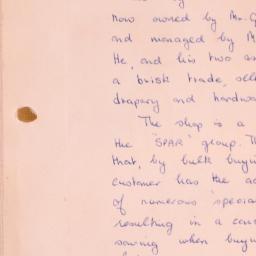 now owned by Mr. G
and managed by M
He, and his two as
a brisk trade, sell
drapery and hardwa
The shop is a
the "SPAR" group. Th
that, by bulk buyin
customer has the ad
of numerous 'specia
resulting in a cons
saving when buyin